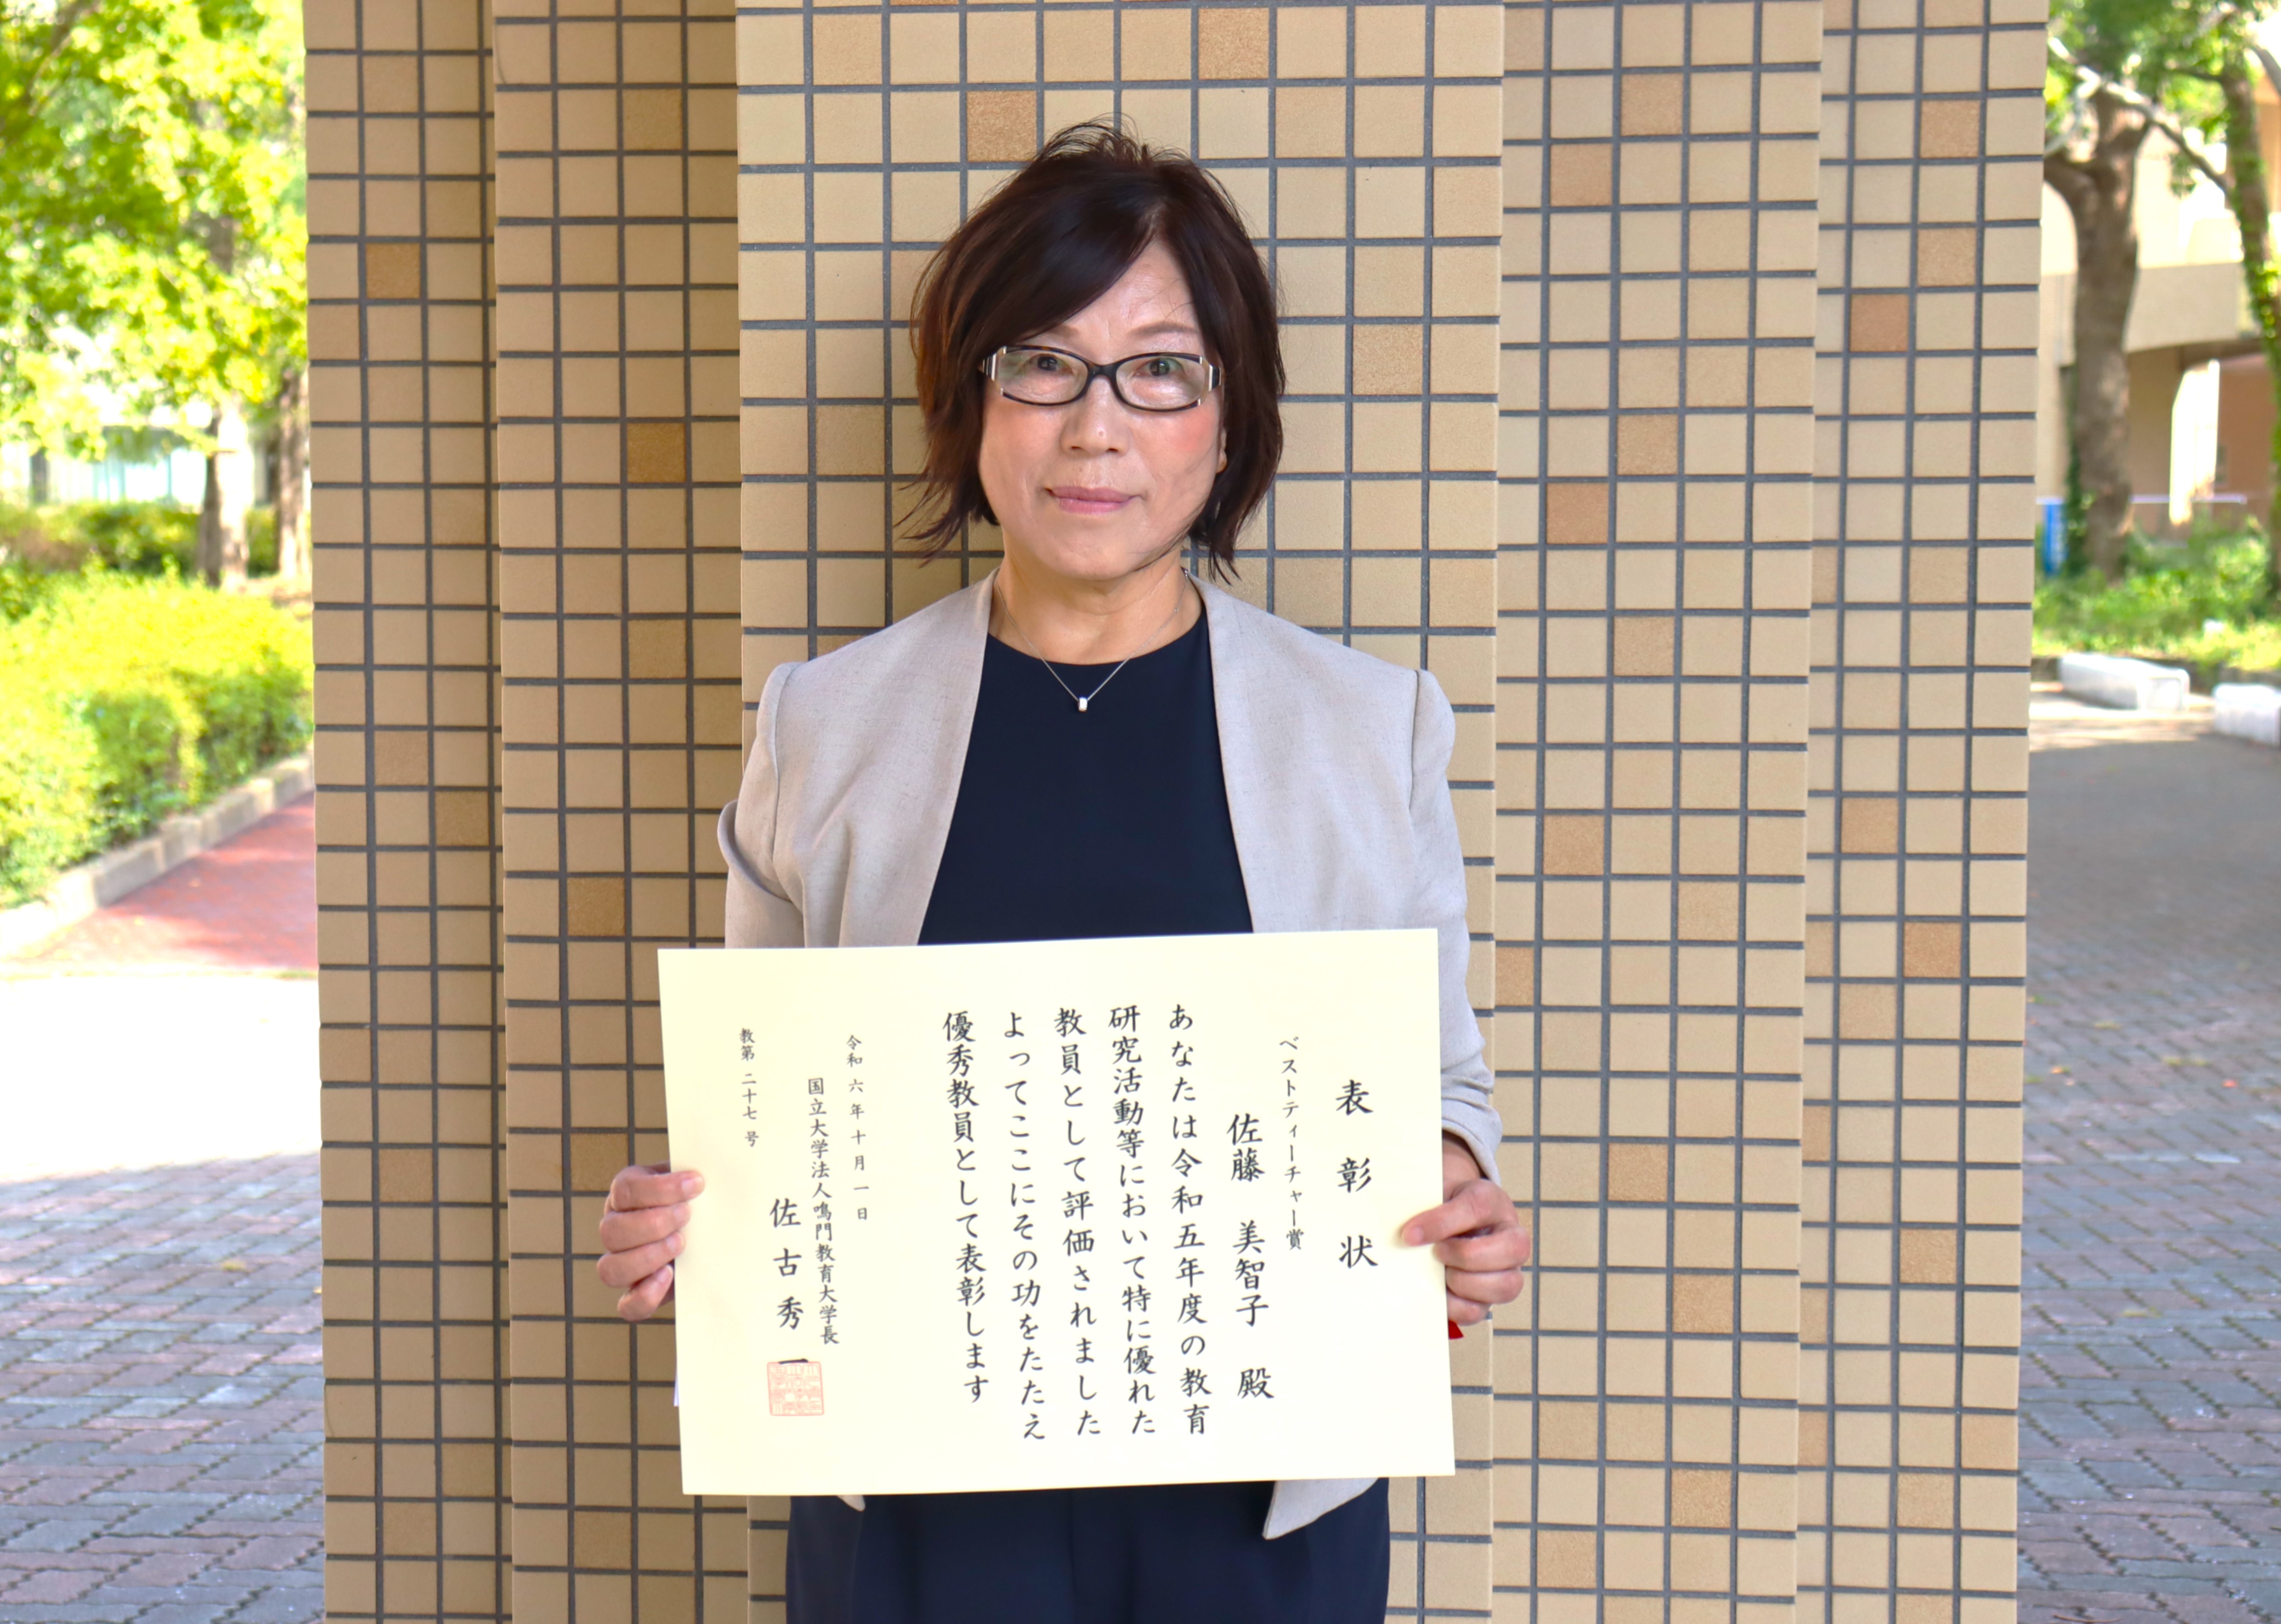 表彰状
ベストティーチャー賞
佐藤 美智子 殿
あなたは令和五年度の教育
研究活動等において特に優れた
教員として評価されました
よってここにその功をたたえ
優秀教員として表彰します
令和 六 年 十 月 一 日
国立大学法人鳴門教育大学長
佐古秀一
教第 二十七 号